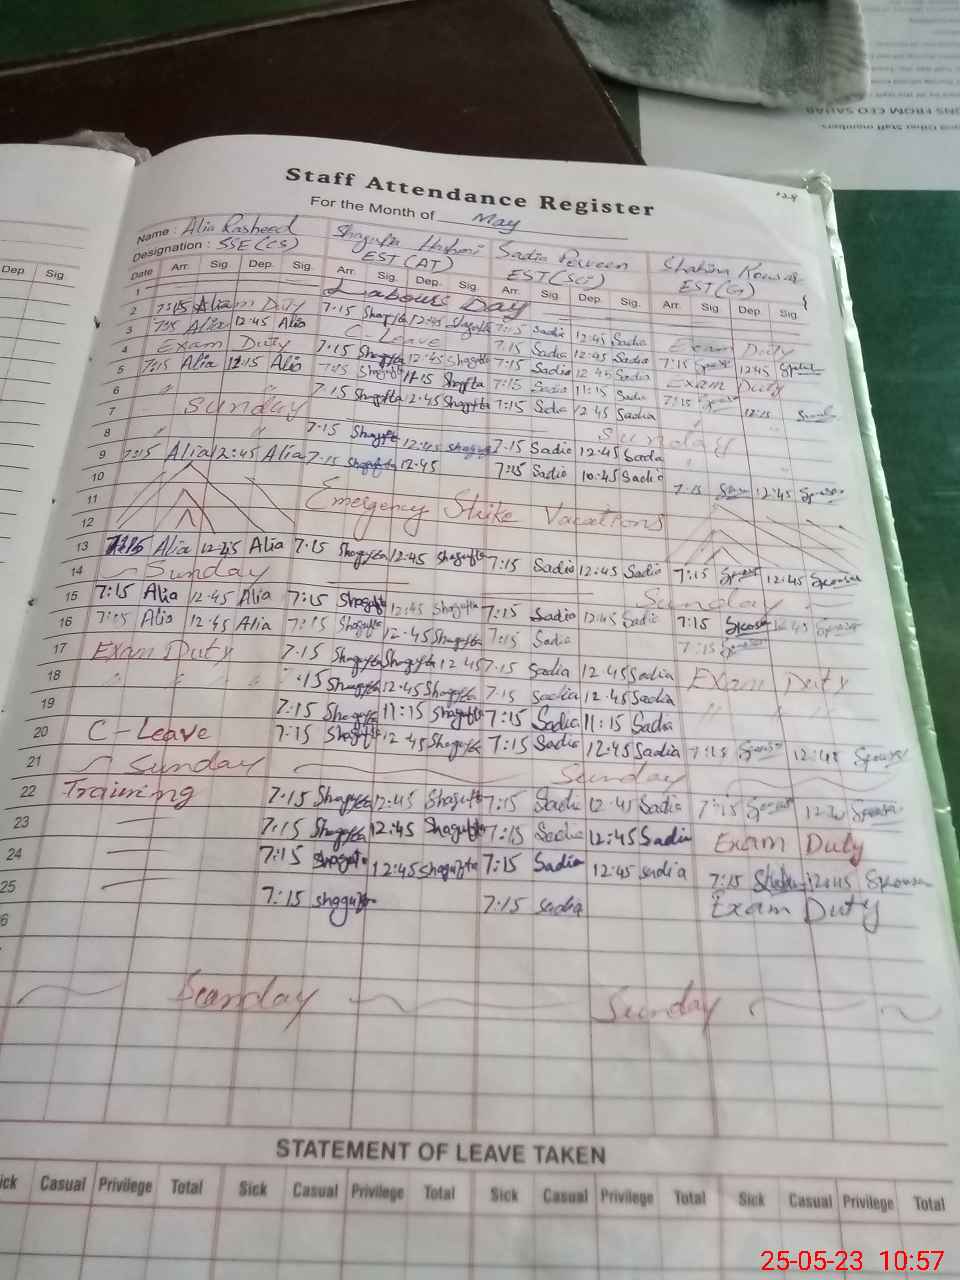 Staff Attendance Register
For the Month of May
Name : Alia Rasheed Shagufta Hashmi Sadia Perveen Shahina Kousar
Designation : SSE(CS) EST(AT) EST(SG) EST(G)
Dep. Sig
Date Arr. Sig. Dep. Sig. Arr. Sig. Dep. Sig. Arr. Sig. Dep. Sig. Arr. Sig. Dep. Sig.
1 Labours Day
2 7:15 Alia m Duty 7:15 Shagufta 12:45 Shagufta 7:15 Sadia 12:45 Sadia Exam Duty
3 7:15 Alia 12:45 Alia C Leave 7:15 Sadia 12:45 Sadia 7:15 12:45
4 Exam Duty 7:15 Shagufta 12:45 Shagufta 7:15 Sadia 12:45 Sadia Exam Duty
5 7:15 Alia 12:15 Alia 7:15 Shagufta 11:15 Shagufta 7:15 Sadia 11:15 Sadia 7:15 12:15
6 " " 7:15 Shagufta 12:45 Shagufta 7:15 Sadia 12:45 Sadia
7 Sunday Sunday
8 " " 7:15 Shagufta 12:45 Shagufta 7:15 Sadia 12:45 Sadia
9 7:15 Alia 12:45 Alia 7:15 Shagufta 12:45 7:15 Sadia 10:45 Sadia 7:15 12:45
10
11 Emergency Strike Vacations
12
13 7:15 Alia 12:45 Alia 7:15 Shagufta 12:45 Shagufta 7:15 Sadia 12:45 Sadia 7:15 12:45
14 Sunday Sunday
15 7:15 Alia 12:45 Alia 7:15 Shagufta 12:45 Shagufta 7:15 Sadia 12:45 Sadia 7:15 12:45
16 7:15 Alia 12:45 Alia 7:15 Shagufta 12:45 Shagufta 7:15 Sadia 7:15
17 Exam Duty 7:15 Shagufta Shagufta 12:45 7:15 Sadia 12:45 Sadia Exam Duty
18 " " " :15 Shagufta 12:45 Shagufta 7:15 Sadia 12:45 Sadia " "
19 7:15 Shagufta 11:15 Shagufta 7:15 Sadia 11:15 Sadia
20 C-Leave 7:15 Shagufta 12:45 Shagufta 7:15 Sadia 12:45 Sadia 7:15 12:45
21 Sunday Sunday
22 Training 7:15 Shagufta 12:45 Shagufta 7:15 Sadia 12:45 Sadia 7:15
23 7:15 Shagufta 12:45 Shagufta 7:15 Sadia 12:45 Sadia Exam Duty
24 7:15 Shagufta 12:45 Shagufta 7:15 Sadia 12:45 Sadia 7:15 12:45
25 7:15 Shagufta 7:15 Sadia Exam Duty
6
Sunday Sunday
STATEMENT OF LEAVE TAKEN
ick Casual Privilege Total Sick Casual Privilege Total Sick Casual Privilege Total Sick Casual Privilege Total
25-05-23 10:57